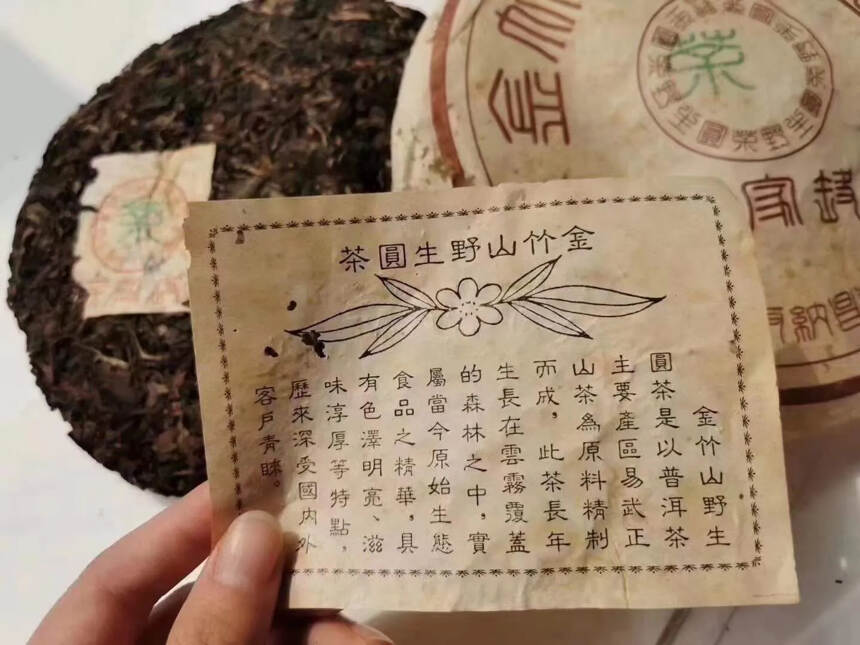 金竹山野生圓茶
金竹山野生
圓茶是以普洱茶
主要產區易武正
山茶為原料精制
而成，此茶長年
生長在雲霧覆蓋
的森林之中，實
屬當今原始生態
食品之精華，具
有色澤明亮、滋
味淳厚等特點，
歷來深受國內外
客戶青睞。
金竹
茶
茶